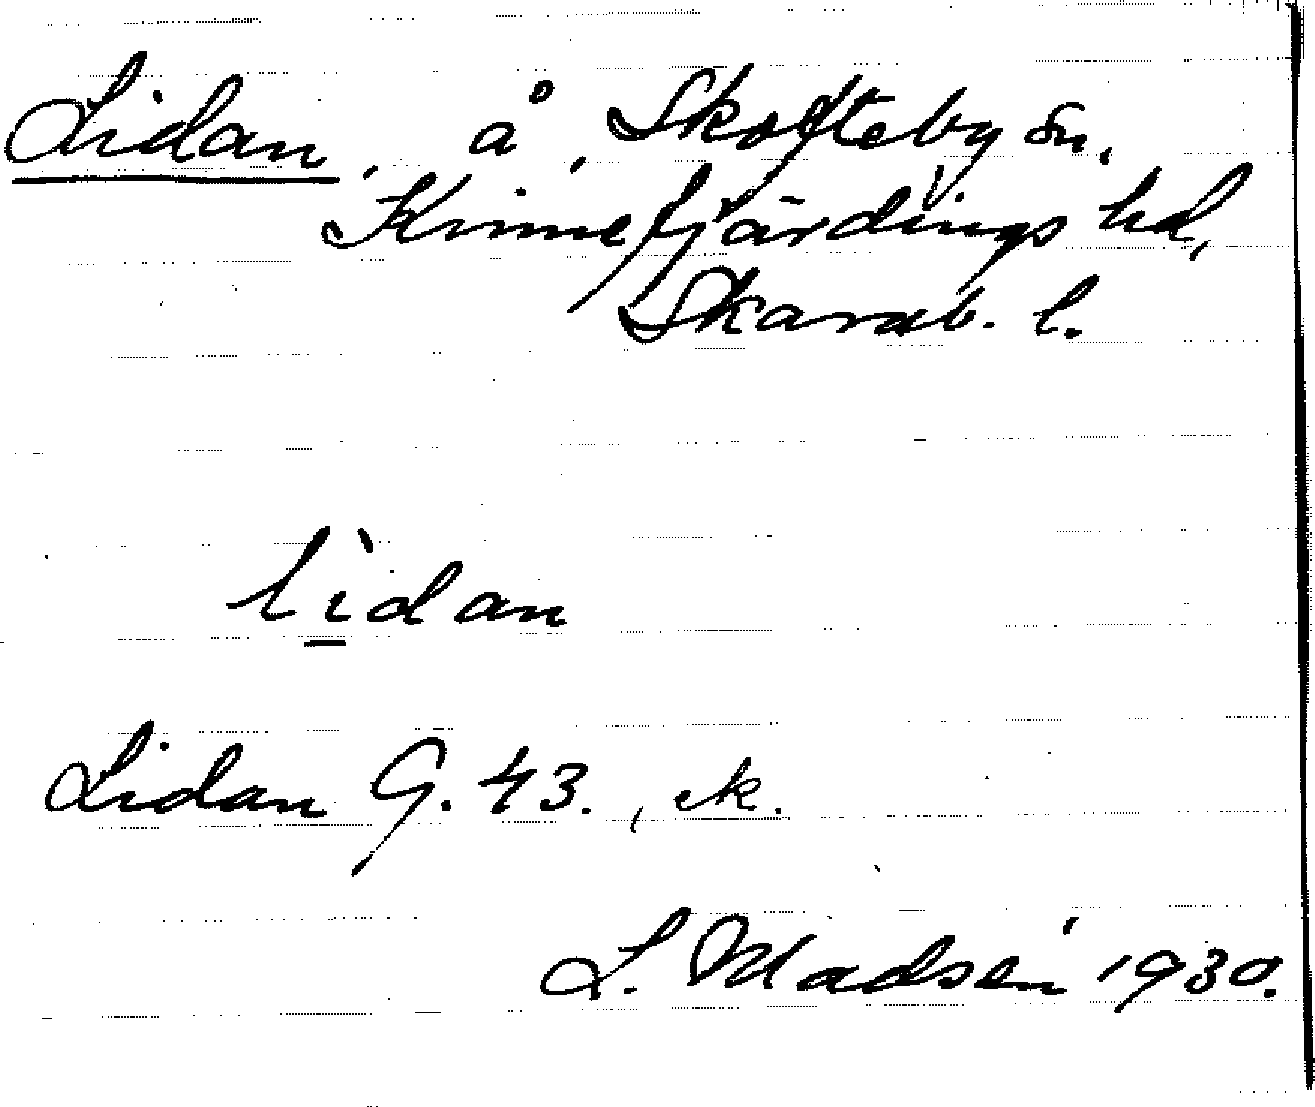 Lidan, å, Skofteby sn,
Kinnefjärdings hd,
Skarab. l.
lìdan
Lidan G. 43., ek.
L. Madsén 1930.